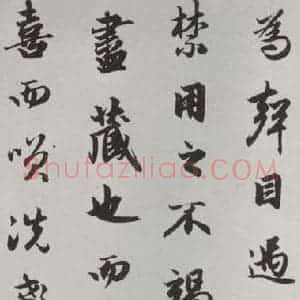 為聲目遇
禁用之不竭
盡藏也而
喜而咲洗盞
shufaziliao.COM